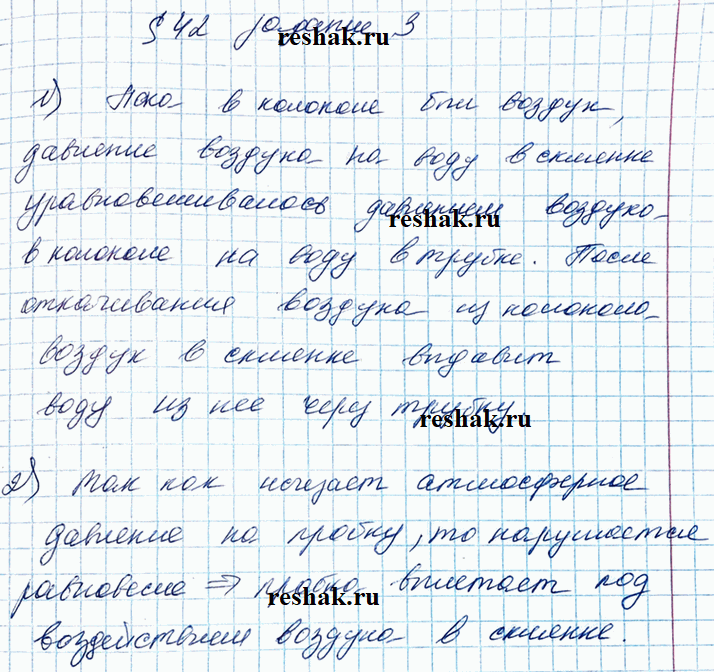 § 42 задание 3
reshak.ru
1) Пока в колоколе был воздух,
давление воздуха на воду в склянке
уравновешивалось давлением воздуха
reshak.ru
в колоколе на воду в трубке. После
откачивания воздуха из колокола
воздух в склянке выдавит
воду из нее через трубку.
reshak.ru
2) Так как исчезает атмосферное
давление на пробку, то нарушается
равновесие ⇒ пробка вылетает под
reshak.ru
воздействием воздуха в склянке.